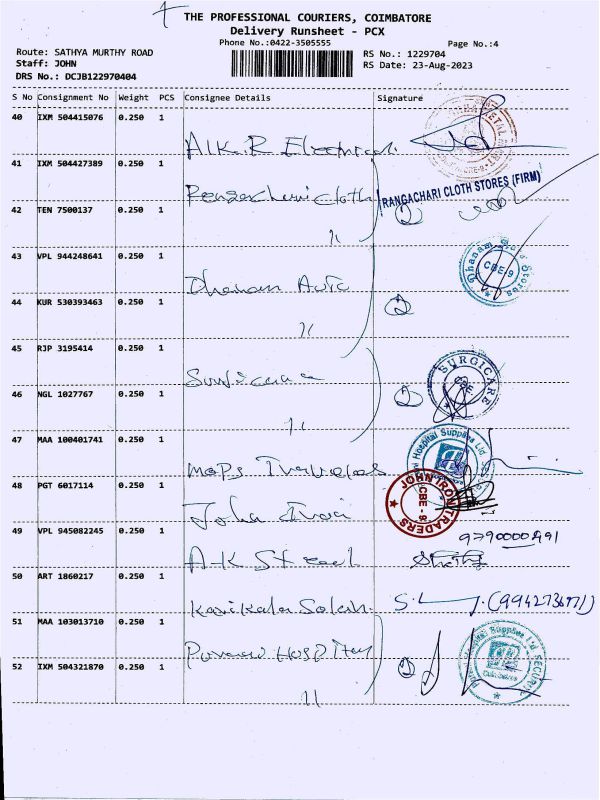 THE PROFESSIONAL COURIERS, COIMBATORE
Delivery Runsheet - PCX
Phone No.:0422-3505555
Page No.:4
Route: SATHYA MURTHY ROAD
RS No.: 1229704
Staff: JOHN
RS Date: 23-Aug-2023
DRS No.: DCJB122970404
S No Consignment No Weight PCS Consignee Details Signature
40 IXM 504415076 0.250 1
41 IXM 504427389 0.250 1 Rangachari Cloth RANGACHARI CLOTH STORES (FIRM)
42 TEN 7500137 0.250 1 "
43 VPL 944248641 0.250 1 Dhanam Auto Dhanam Stores CBE 9
44 KUR 530393463 0.250 1 "
45 RJP 3195414 0.250 1 Surgicare SURGICARE CBE
46 NGL 1027767 0.250 1 "
47 MAA 100401741 0.250 1 Hospital Supplies Ltd
48 PGT 6017114 0.250 1 John Iron JOHN IRON TRADERS CBE - 9
49 VPL 945082245 0.250 1 A-K Steel
50 ART 1860217 0.250 1
51 MAA 103013710 0.250 1 Hospital Hospital Supplies Ltd SECURITY Coimbatore
52 IXM 504321870 0.250 1 "